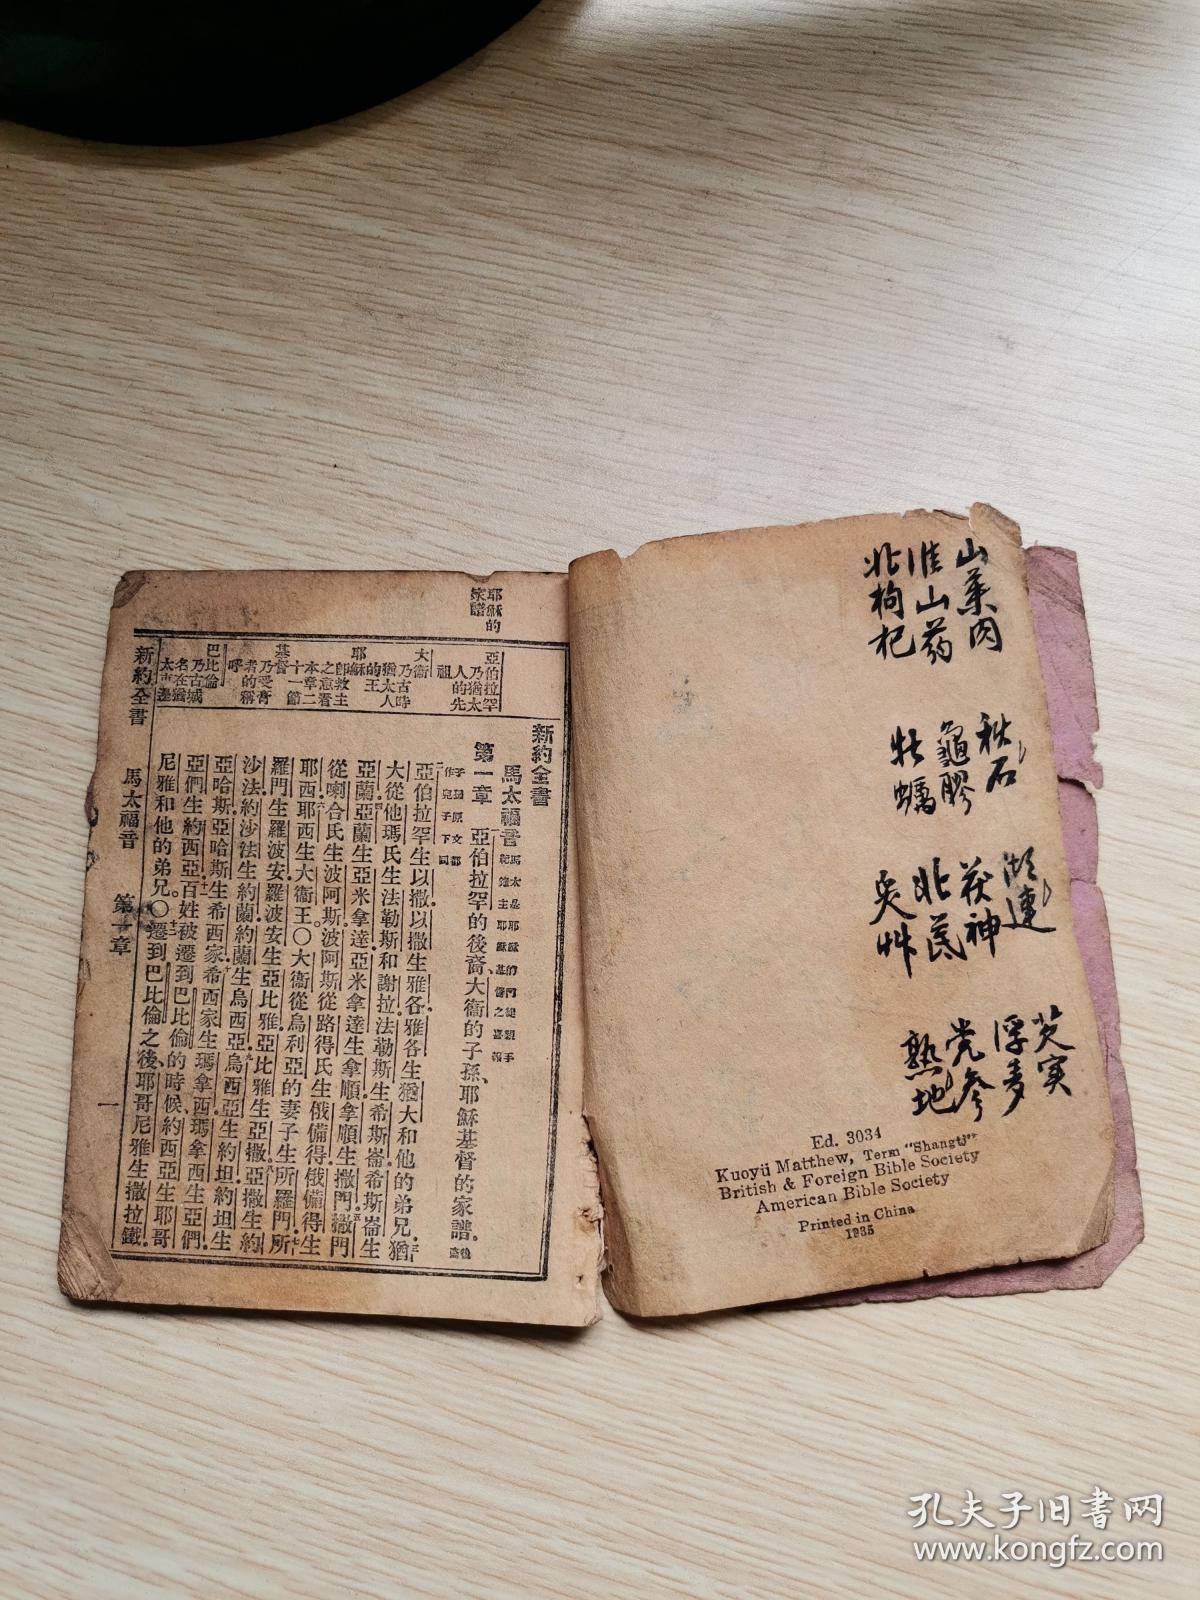 山萸肉
淮山药
北枸杞
秋石
龜膠
牡蠣
湖連
茯神
北芪
炙艸
芡実
浮麦
党参
熟地
Ed. 3034
Kuoyü Matthew, Term "Shangti"
British & Foreign Bible Society
American Bible Society
Printed in China
1935
耶穌的
家譜
亞伯拉罕
乃猶太
人的先
祖
大衞
乃古時
猶太人
的王
耶穌
即救主
之意看
本章二
十一節
基督
乃受膏
者的稱
呼
巴比倫
乃古城
名在猶
太東邊
新約全書
馬太福音
馬太是耶穌的門徒親手
記錄主耶穌基督之喜報
第一章
亞伯拉罕的後裔、大衞的子孫、耶穌基督的家譜.後裔
子孫原文都
作兒子下同
亞伯拉罕生以撒.以撒生雅各.雅各生猶大和他的弟兄.猶
大從他瑪氏生法勒斯和謝拉.法勒斯生希斯崙.希斯崙生
亞蘭.亞蘭生亞米拿達.亞米拿達生拿順.拿順生撒門.撒門
從喇合氏生波阿斯.波阿斯從路得氏生俄備得.俄備得生
耶西.耶西生大衞王.〇大衞從烏利亞的妻子生所羅門.所
羅門生羅波安.羅波安生亞比雅.亞比雅生亞撒.亞撒生約
沙法.約沙法生約蘭.約蘭生烏西亞.烏西亞生約坦.約坦生
亞哈斯.亞哈斯生希西家.希西家生瑪拿西.瑪拿西生亞們.
亞們生約西亞.百姓被遷到巴比倫的時候、約西亞生耶哥
尼雅和他的弟兄。〇遷到巴比倫之後、耶哥尼雅生撒拉鐵.
新約全書
馬太福音
第一章
一
孔夫子旧书网
www.kongfz.com